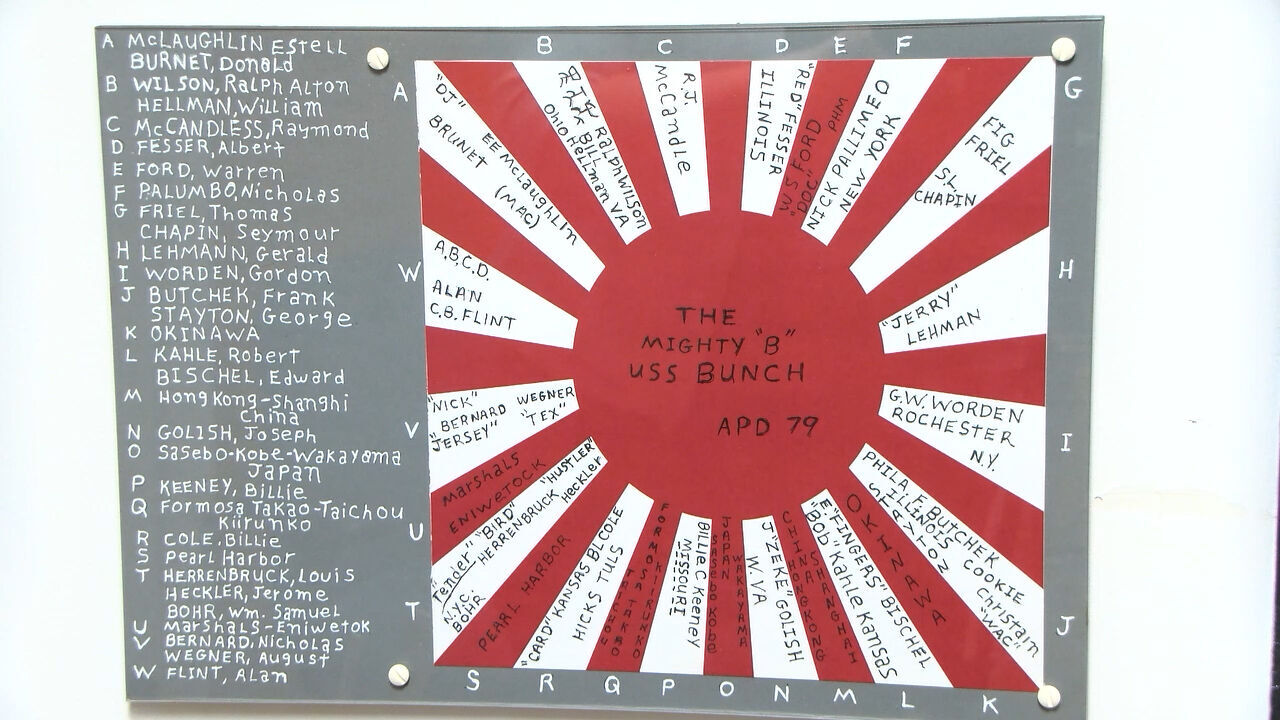 A McLAUGHLIN Estell
BURNET, Donald
B WILSON, Ralph Alton
HELLMAN, William
C McCANDLESS, Raymond
D FESSER, Albert
E FORD, Warren
F PALUMBO, Nicholas
G FRIEL, Thomas
CHAPIN, Seymour
H LEHMANN, Gerald
I WORDEN, Gordon
J BUTCHEK, Frank
STAYTON, George
K OKINAWA
L KAHLE, Robert
BISCHEL, Edward
M Hong Kong-Shanghi
China
N GOLISH, Joseph
O Sasebo-Kobe-Wakayama
Japan
P KEENEY, Billie
Q Formosa Takao-Taichou
Kiirunko
R COLE, Billie
S Pearl Harbor
T HERRENBRUCK, Louis
HECKLER, Jerome
BOHR, Wm. Samuel
U Marshals-Eniwetok
V BERNARD, Nicholas
WEGNER, August
W FLINT, Alan
A
B
C
D
E
F
G
H
I
J
K
L
M
N
O
P
Q
R
S
T
U
V
W
"DJ"
BRUNET
EE McLaughlin
(MAC)
Ralph Wilson
VA
Bill Hellman
Ohio
R.J.
McCandle
"RED" FESSER
ILLINOIS
"W S FORD
"DOC" PHM
NICK PALLIMEO
NEW YORK
FIG
FRIEL
S.L.
CHAPIN
"JERRY"
LEHMAN
G.W. WORDEN
ROCHESTER
N.Y.
PHILA, F. Butchek
ILLINOIS COOKIE
SEXTON Christain
"WAC"
OKINAWA
E "FINGERS" BISCHEL
"Bob" Kahle Kansas
CHINA HONGKONG
SHANGHAI
J "ZEKE" GOLISH
W. VA
JAPAN WAKAYAMA
SASEBO KOBE
BILLIE C Keeney
MISSOURI
FORMOSA TAKAO
KIIRUNKO
B L COLE
"CARD" KANSAS
HICKS TULS
PEARL HARBOR
"HUSTLER"
Heckler
"BIRD"
HERRENBRUCK
"Tender"
N.Y.C.
BOHR
Marshals
ENIWETOCK
"NICK" WEGNER
"BERNARD "TEX"
JERSEY"
A.B.C.D.
ALAN
C.B. FLINT
THE
MIGHTY "B"
USS BUNCH
APD 79